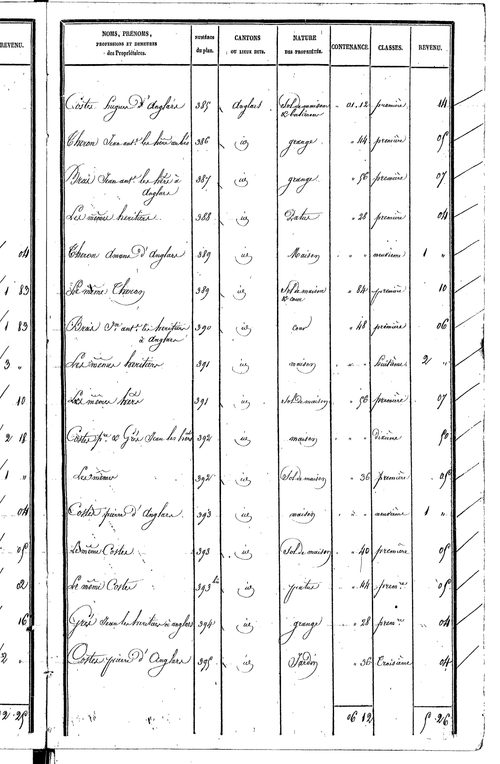 REVENU.
04
1 83
1 83
3 "
10
2 18
1 "
04
05
02
16
2 "
2 25
NOMS, PRÉNOMS, PROFESSIONS ET DEMEURES des Propriétaires. NUMÉROS du plan. CANTONS OU LIEUX DITS. NATURE DES PROPRIÉTÉS. CONTENANCE. CLASSES. REVENU.
Costes d'Anglars 385 Anglars Sol de maison & batiment 01.12 première 14
Theron Jean ant. les hér. 386 id grange " 44 première 05
Brai Jean ant. les hér. à Anglars 387 id grange " 56 première 07
Les même heritiers 388 id Patus " 28 première 04
Theron Amans d'Anglars 389 id Maison " " neuvième 1 "
Le même Theron 389 id Sol de maison & cour " 84 première 10
Brai Jn ant. les heritiers à Anglars 390 id cour " 48 première 06
Les même heritiers 391 id maison " " huitième 2 "
Les même hérs 391 id Sol de maison " 56 première 07
Costes & Gré Jean les hérs 392 id maison " " dixième 50
Les même 392 id Sol de maison " 36 première 05
Costes pierre d'Anglars 393 id maison " " neuvième 1 "
Le même Costes 393 id Sol de maison " 40 première 05
Le même Costes 393 bis id patus " 44 prem.re 05
Gré Jean les heritiers à anglars 394 id grange " 28 prem.re " 04
Costes pierre d'Anglars 395 id Jardin " 36 Troisième 04
06 12 5 26